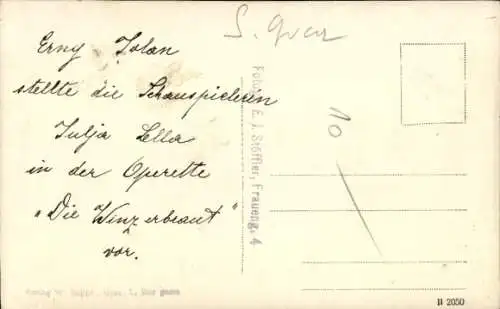 S.
Erny Iolan
stellte die Schauspielerin
Julja Lella
in der Operette
"Die Winzerbraut"
vor.
E. J. Stöffler, Fraueng. 4
10
B 2050